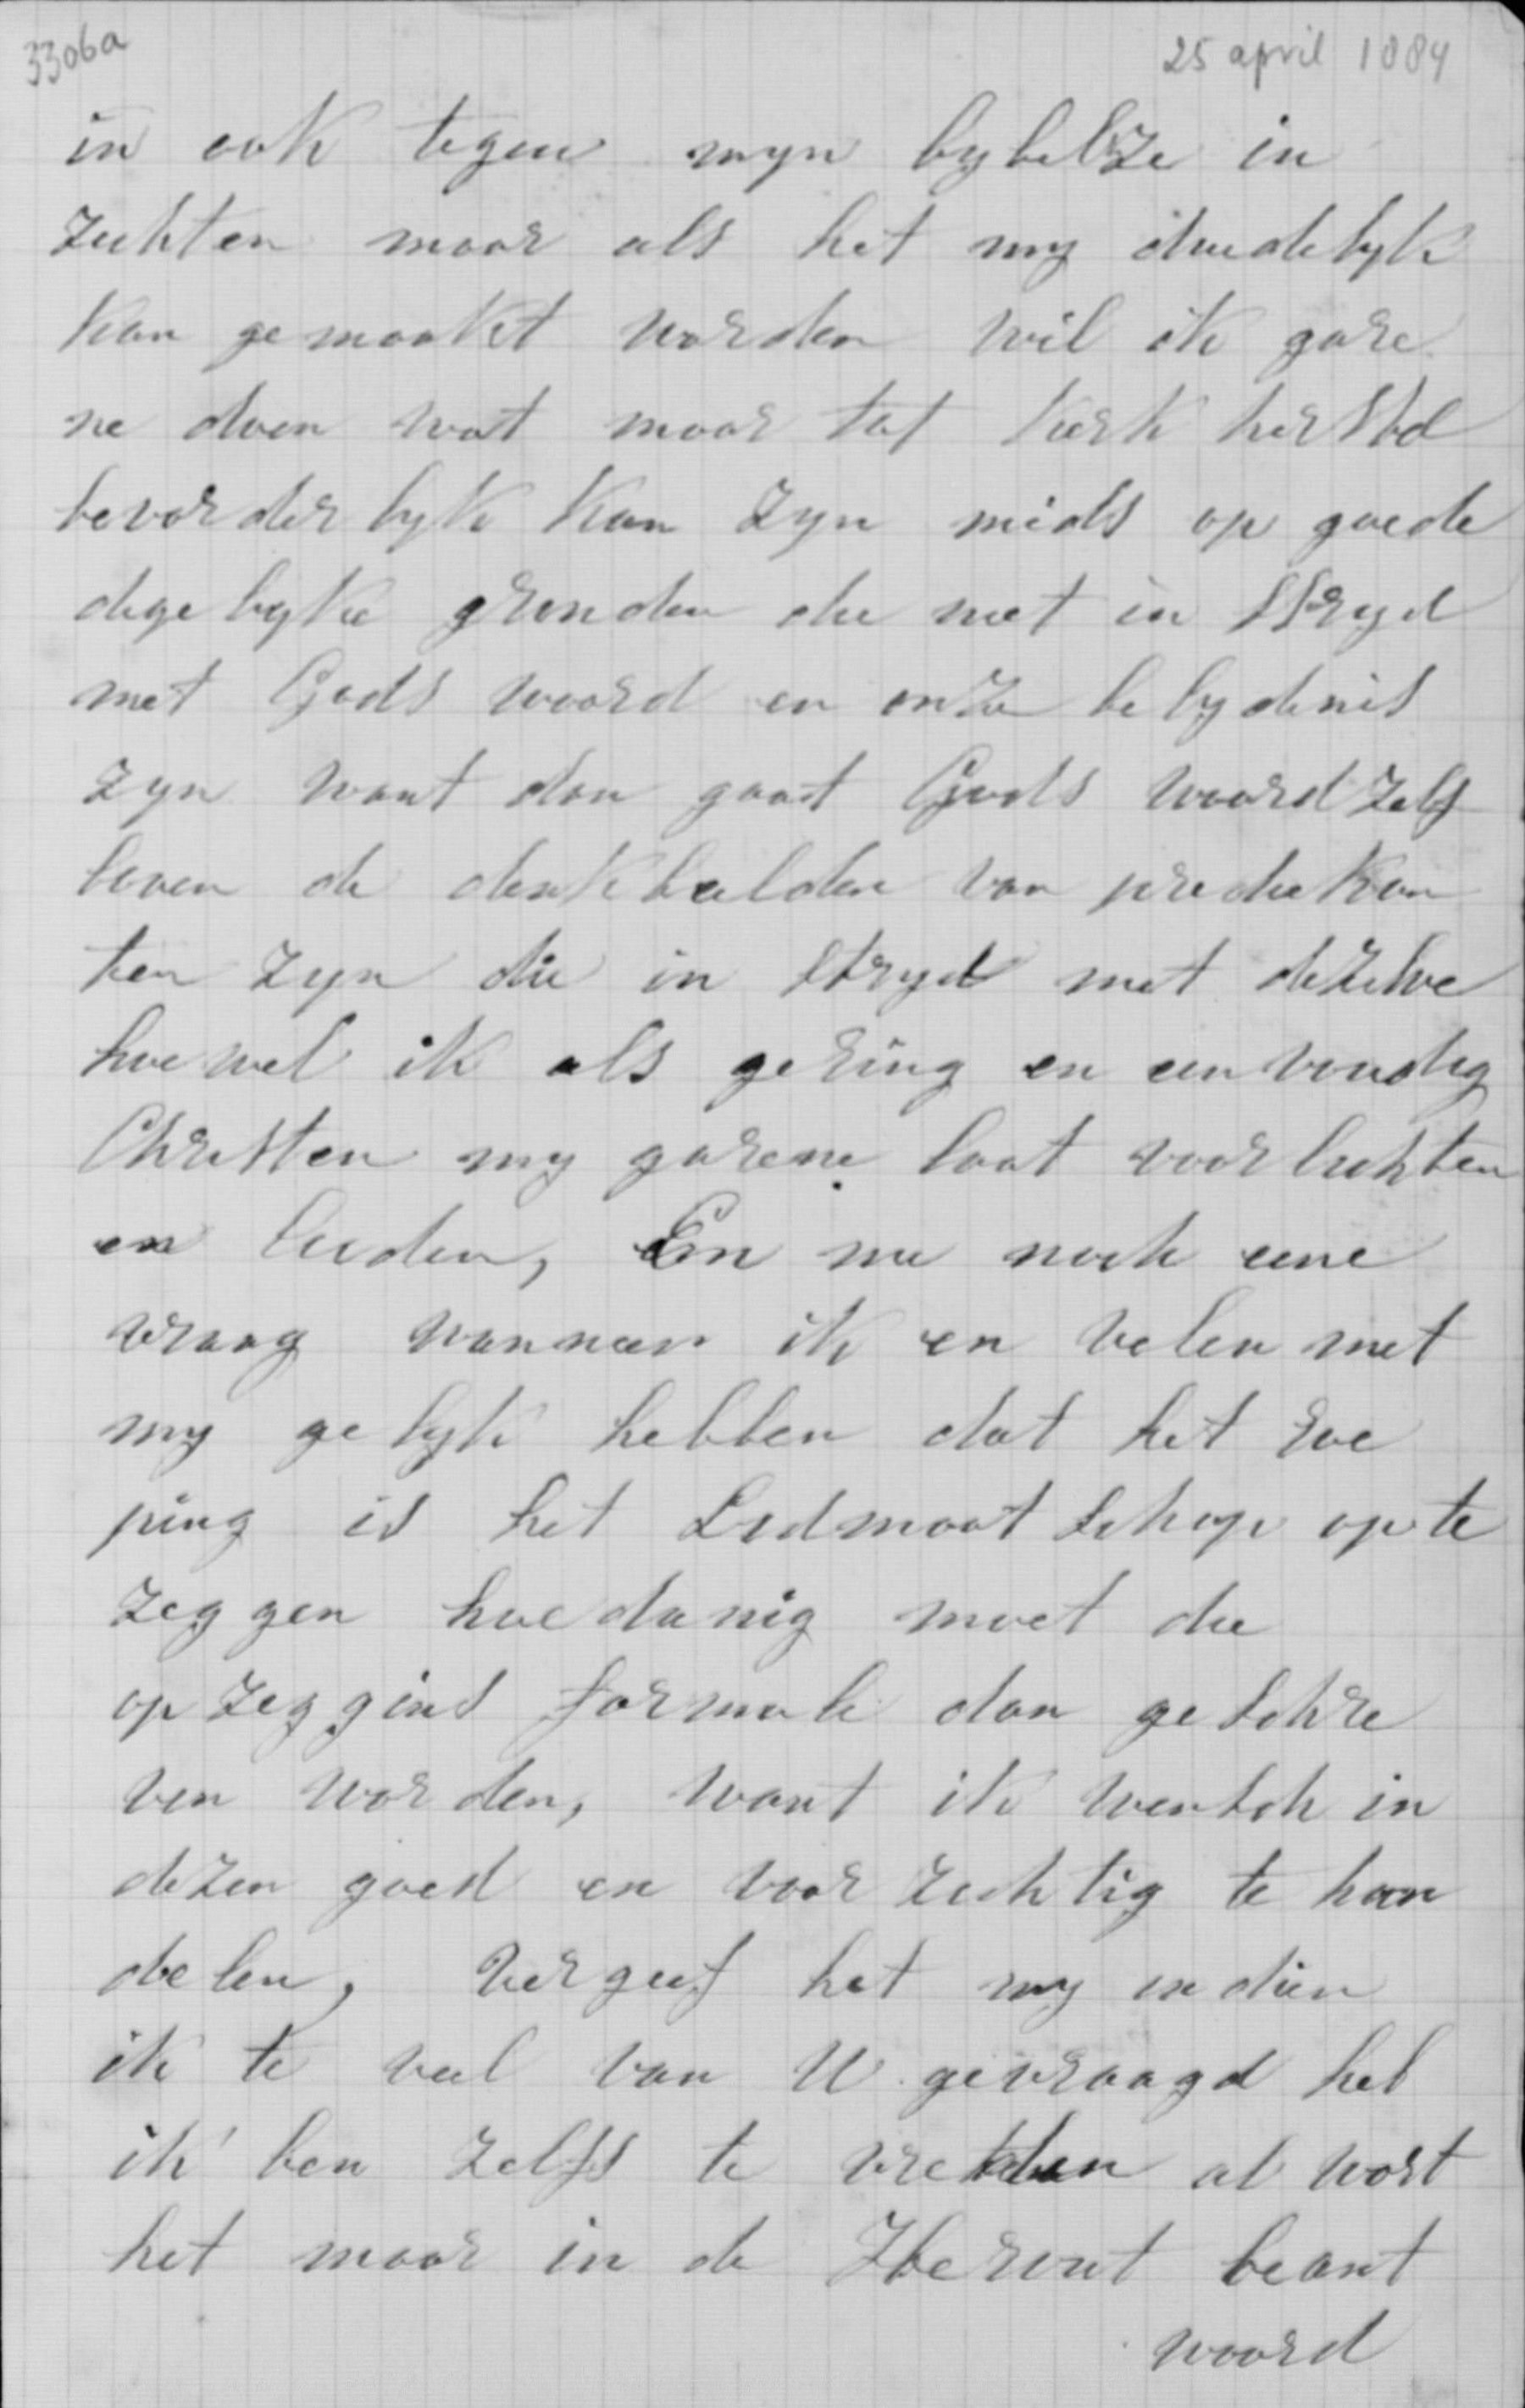 3306a 25 april 1884
in ook tegen myn bybelze in
zichten maar als het my duidelyk
kan gemaakt worden wil ik gare
ne doen wat maar tot kerk herstel
bevorderlyk kan zyn mids op goede
degelyke gronden die niet in stryd
met Gods woord en onze belydenis
zyn want dan gaat Gods woord zelf
boven de denkbeelden van prediekan
ten zyn die in stryd met dezelve
hoewel ik als gering en eenvoudig
Christen my garene laat voorlichten
en leiden, En nu noch eene
vraag wanneer ik en velen met
my gelyk hebben dat het roe
ping is het Lidmaatschap op te
zeggen hoedanig moet die
opzeggins formule dan geschre
ven worden, want ik wensch in
dezen goed en voorzichtig te han
delen, vergeef het my indien
ik te veel van U gevraagd heb
ik ben zelfs te vreden al wort
het maar in de Heraut beant
woord